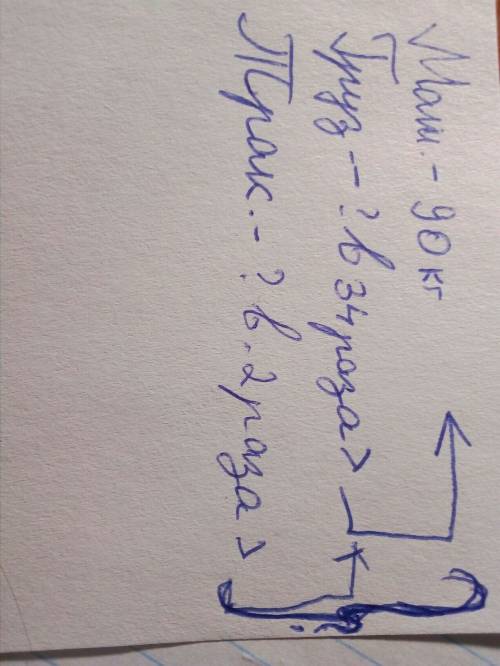 Маш. - 90 кг
Груз - ? в 34 раза >
Трак. - ? в. 2 раза >
?